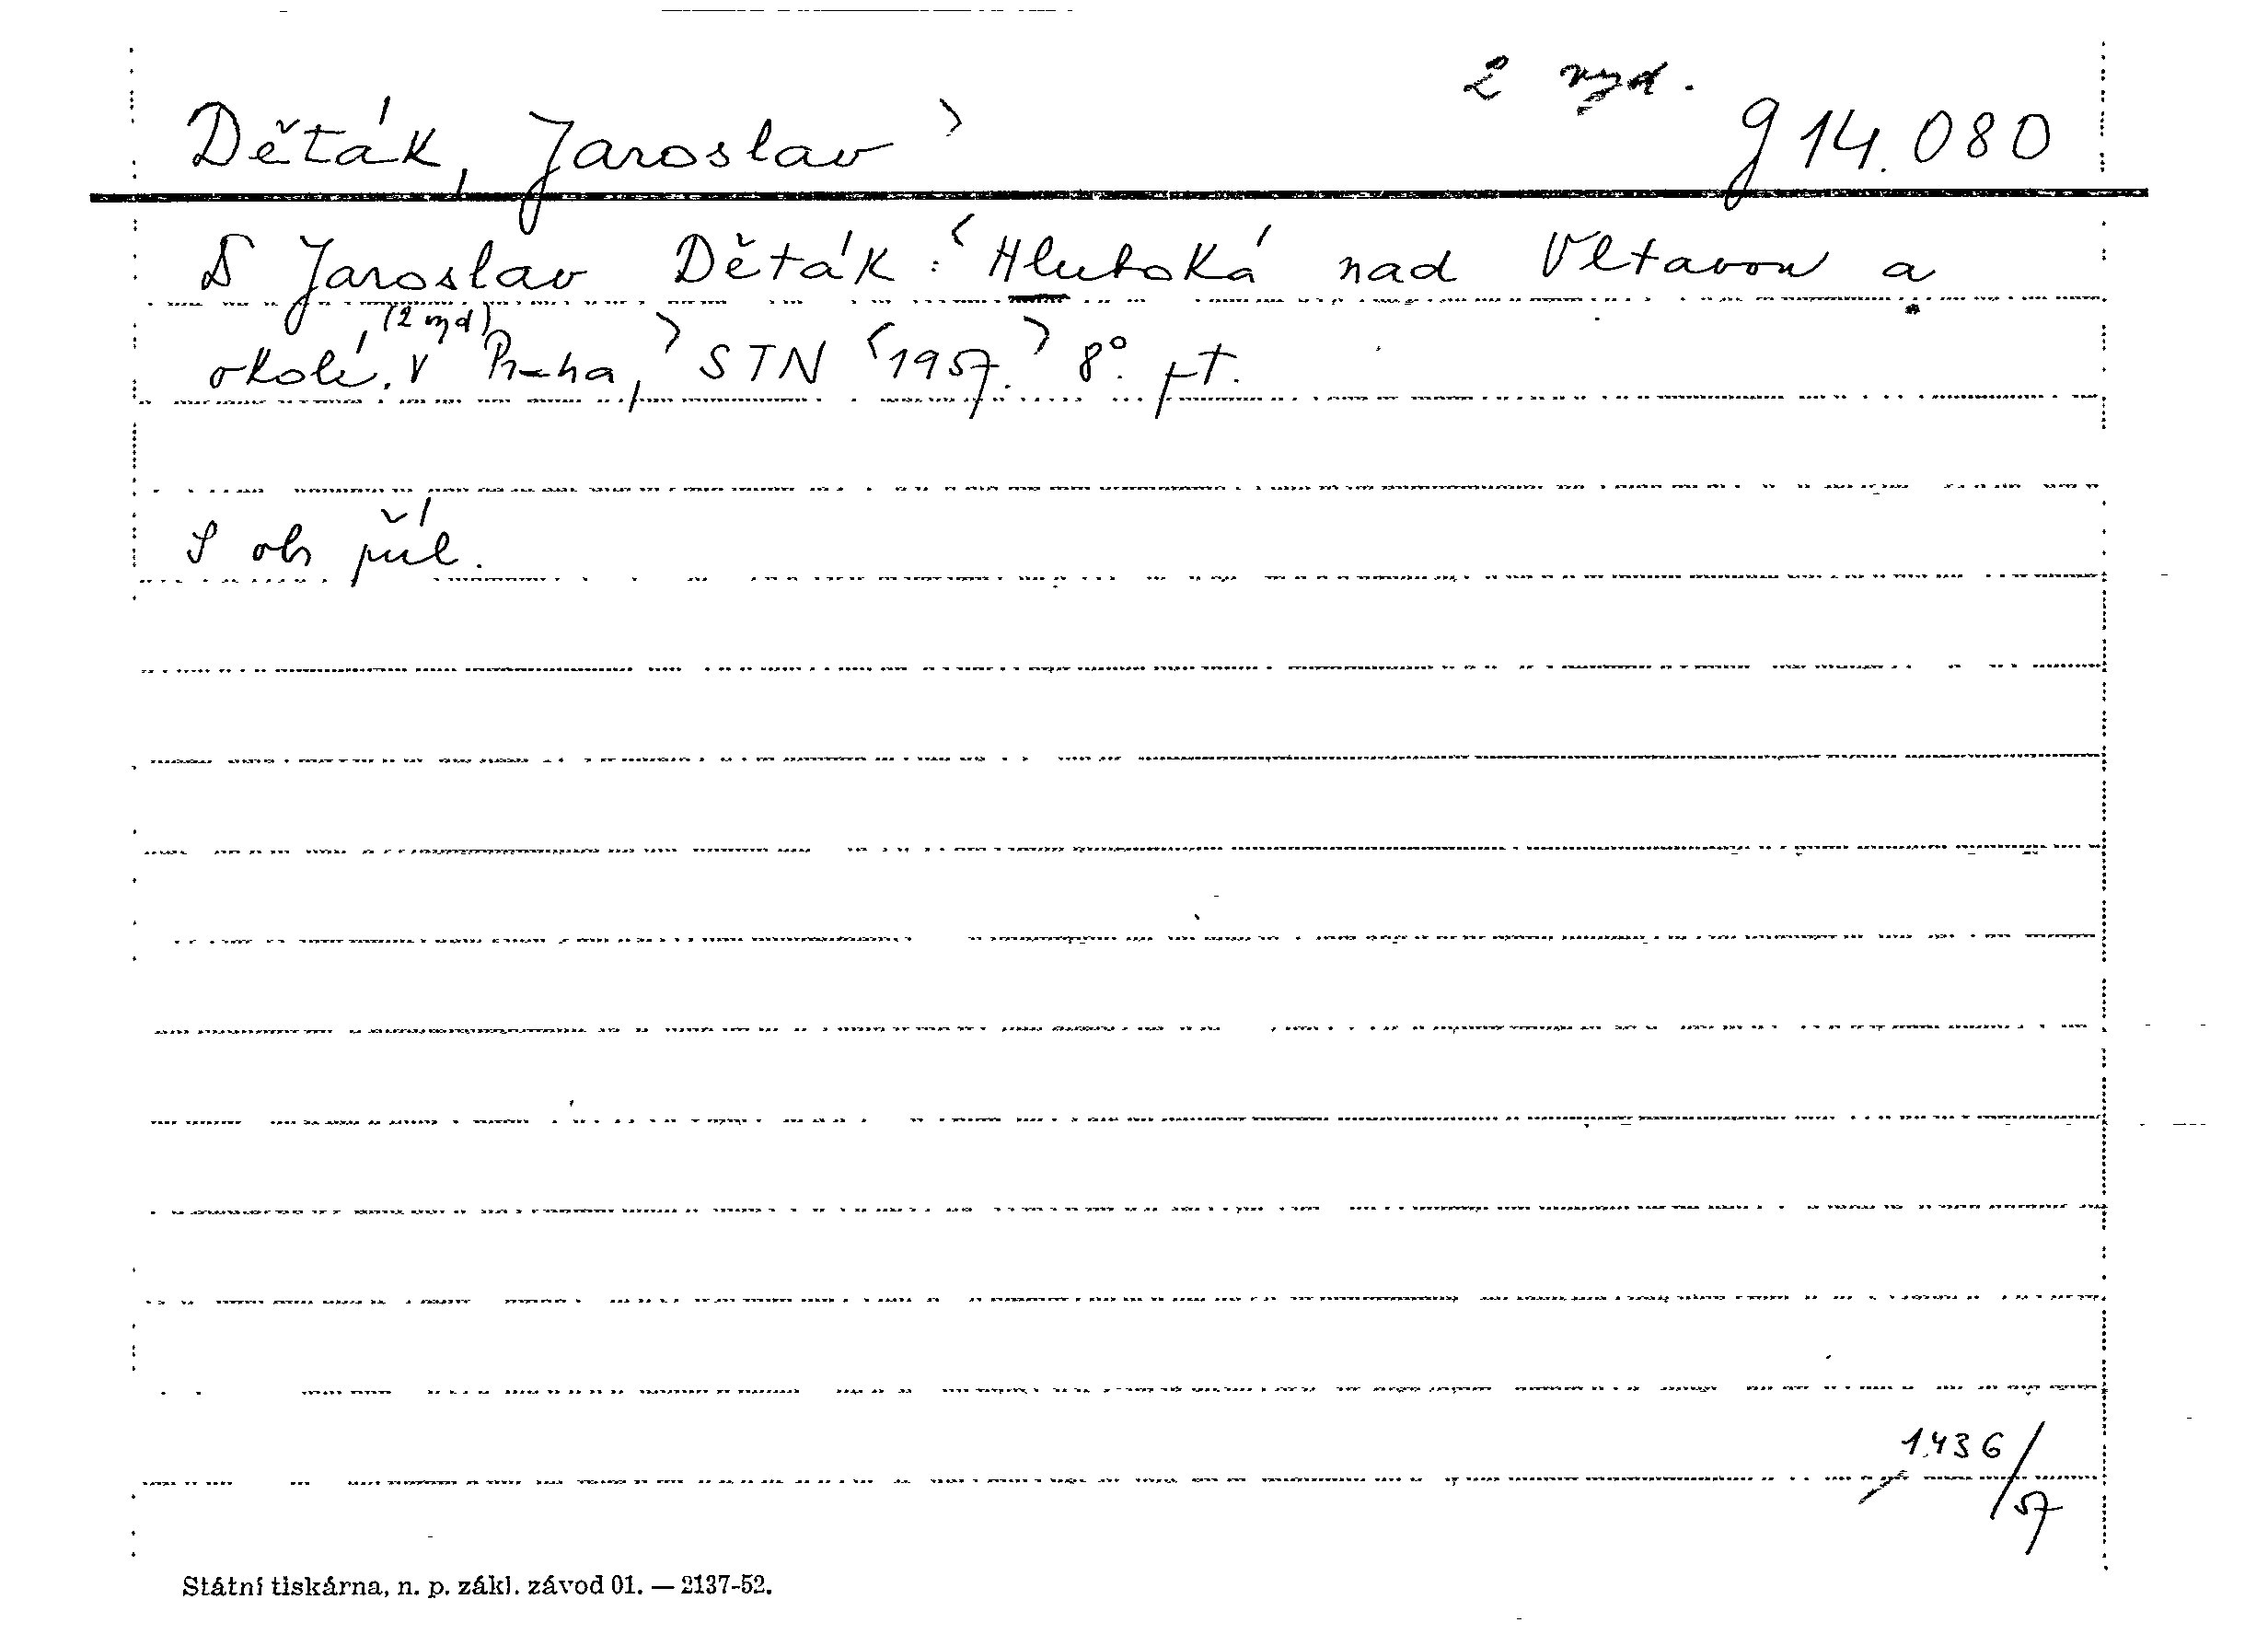 2 vyd.
Děták, Jaroslav> g 14.080
Jaroslav Děták: <Hluboká nad Vltavou a
okolí. (2 vyd) V Praha,> STN <1957.> 8°. pt.
S ob příl.
1436/57
Státní tiskárna, n. p. zákl. závod 01. — 2137-52.